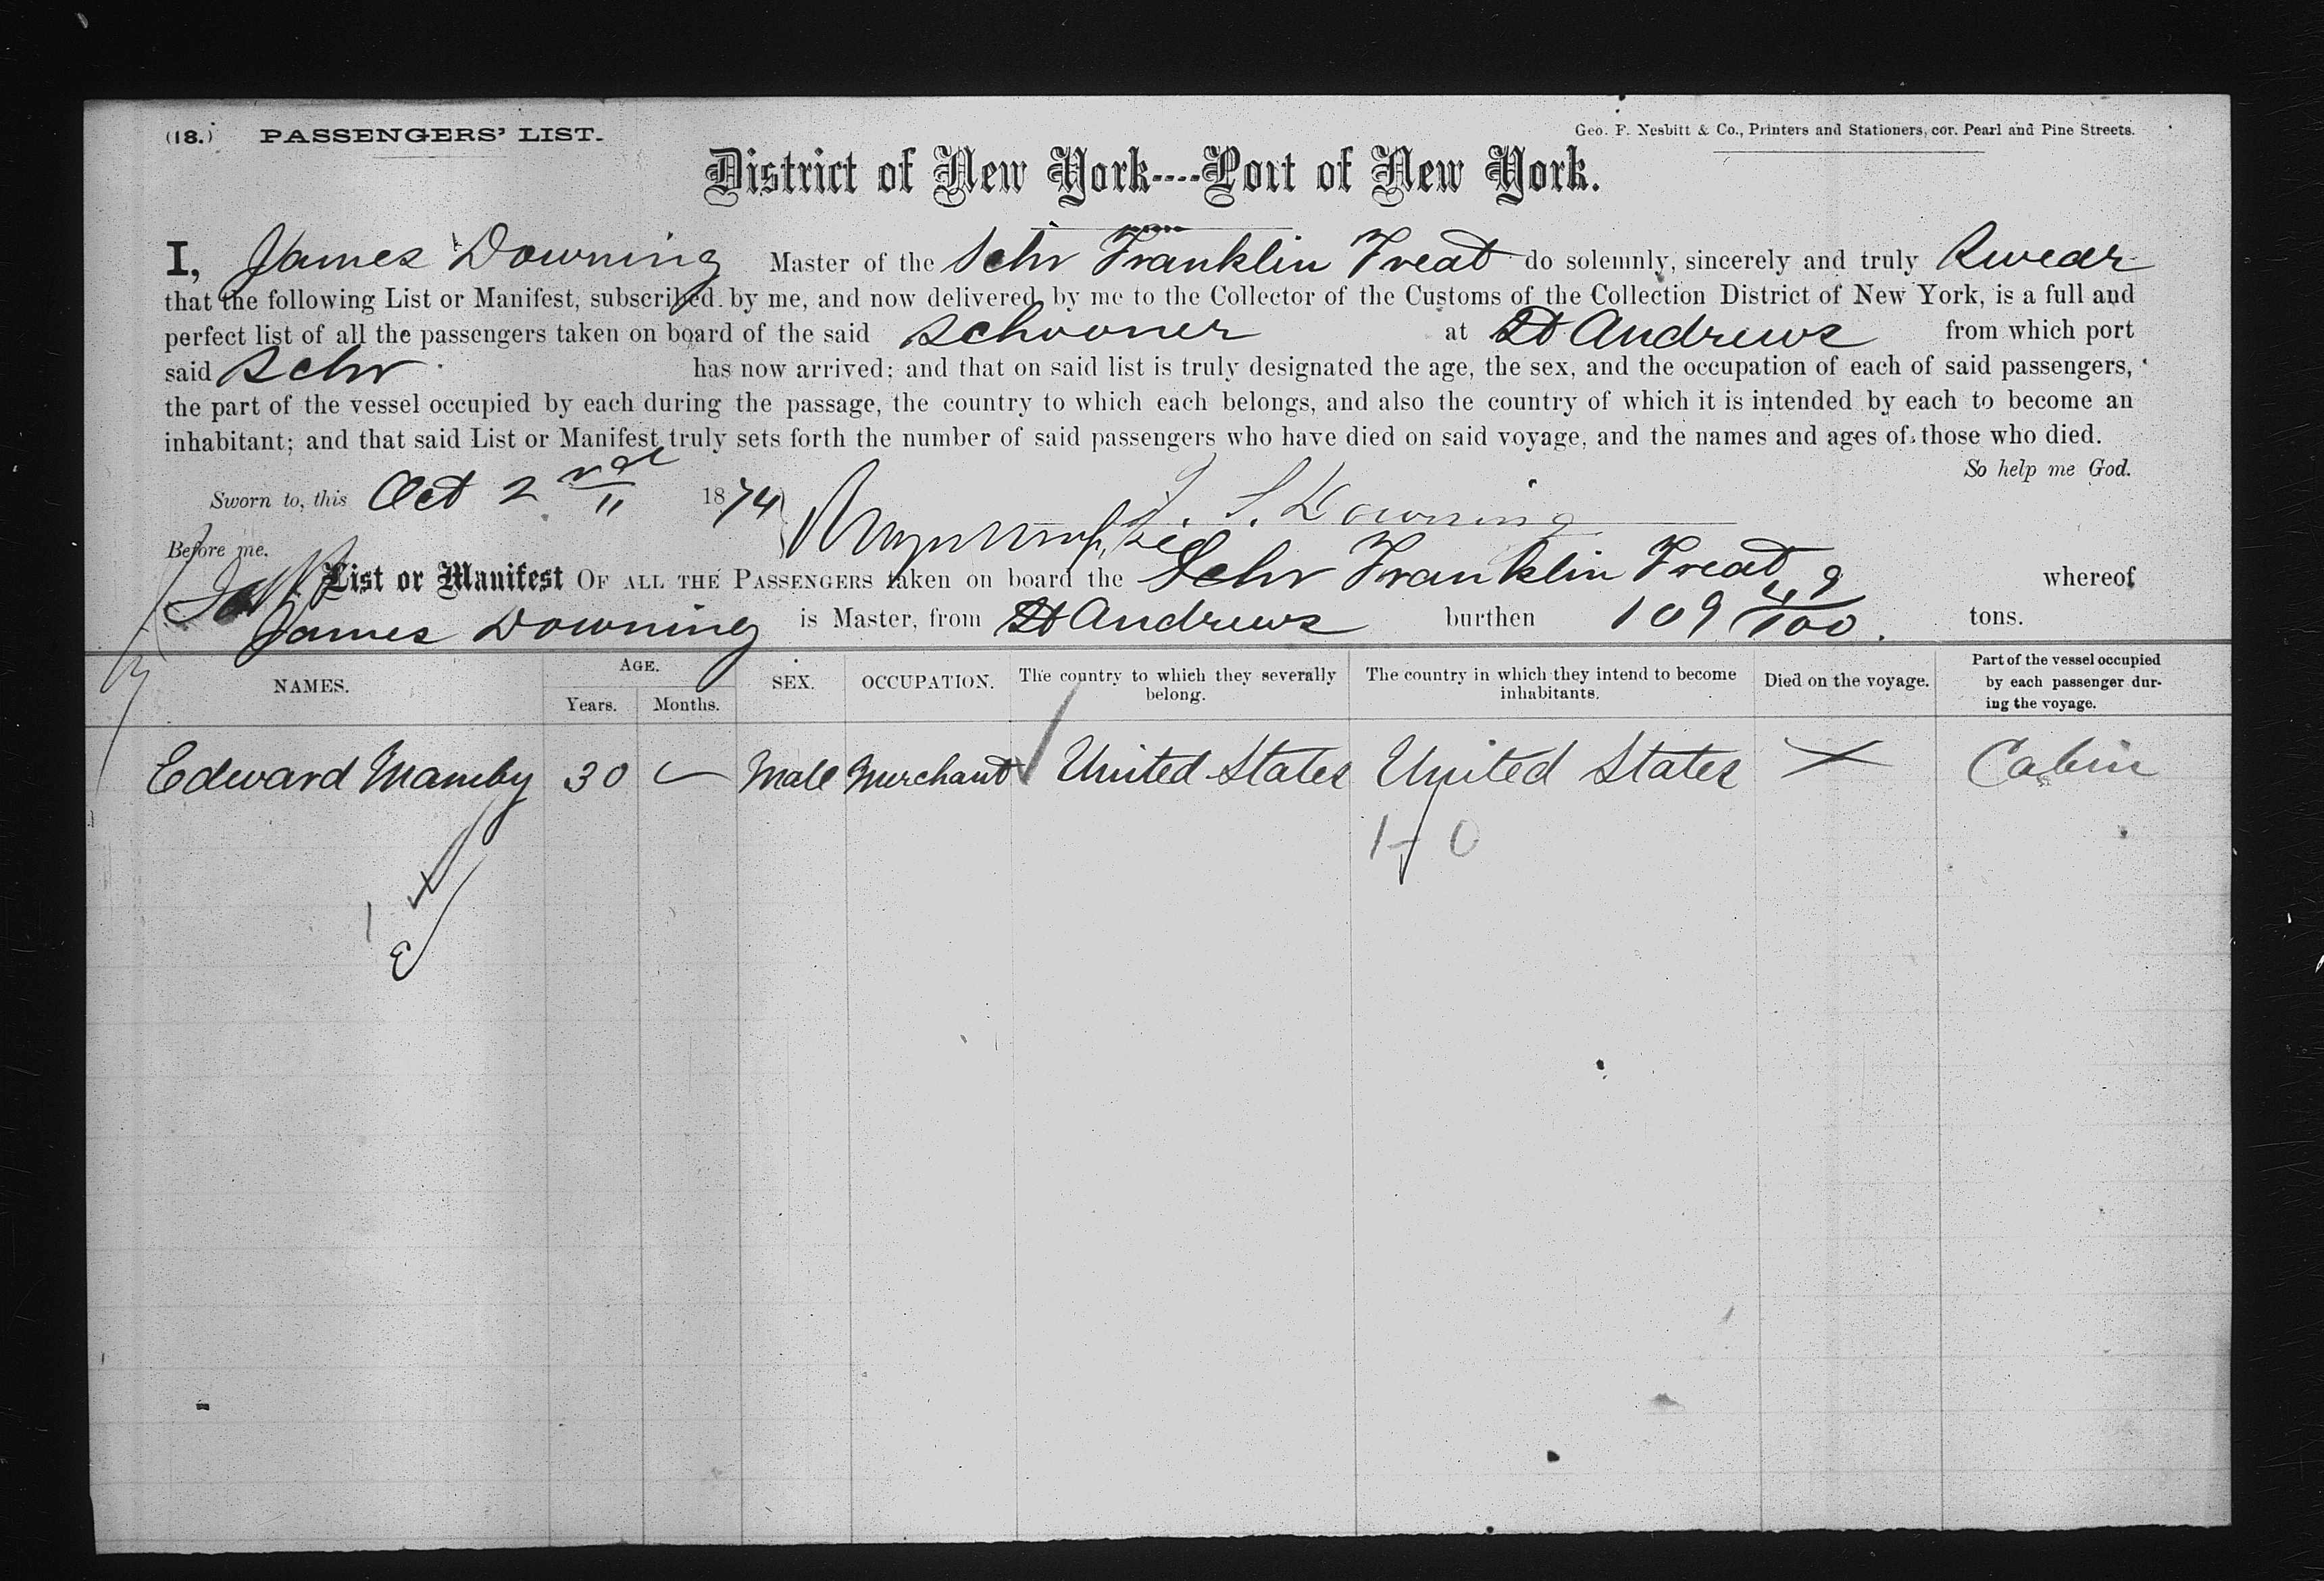 (18.) PASSENGERS' LIST.
Geo. F. Nesbitt & Co., Printers and Stationers, cor. Pearl and Pine Streets.
District of New York----Port of New York.
I, James Downing Master of the Schr Franklin Treat do solemnly, sincerely and truly swear
that the following List or Manifest, subscribed by me, and now delivered by me to the Collector of the Customs of the Collection District of New York, is a full and
perfect list of all the passengers taken on board of the said schooner at St Andrews from which port
said schr has now arrived; and that on said list is truly designated the age, the sex, and the occupation of each of said passengers,
the part of the vessel occupied by each during the passage, the country to which each belongs, and also the country of which it is intended by each to become an
inhabitant; and that said List or Manifest truly sets forth the number of said passengers who have died on said voyage, and the names and ages of those who died.
So help me God.
Sworn to, this Oct 2 1874
J. S. Downing
Before me,
List or Manifest OF ALL THE PASSENGERS taken on board the Schr Franklin Treat whereof
James Downing is Master, from St Andrews burthen 109 49/100 tons.
NAMES. AGE. Years. Months. SEX. OCCUPATION. The country to which they severally belong. The country in which they intend to become inhabitants. Died on the voyage. Part of the vessel occupied by each passenger during the voyage.
Edward 30 Male Merchant United States United States Cabin
1 0
1